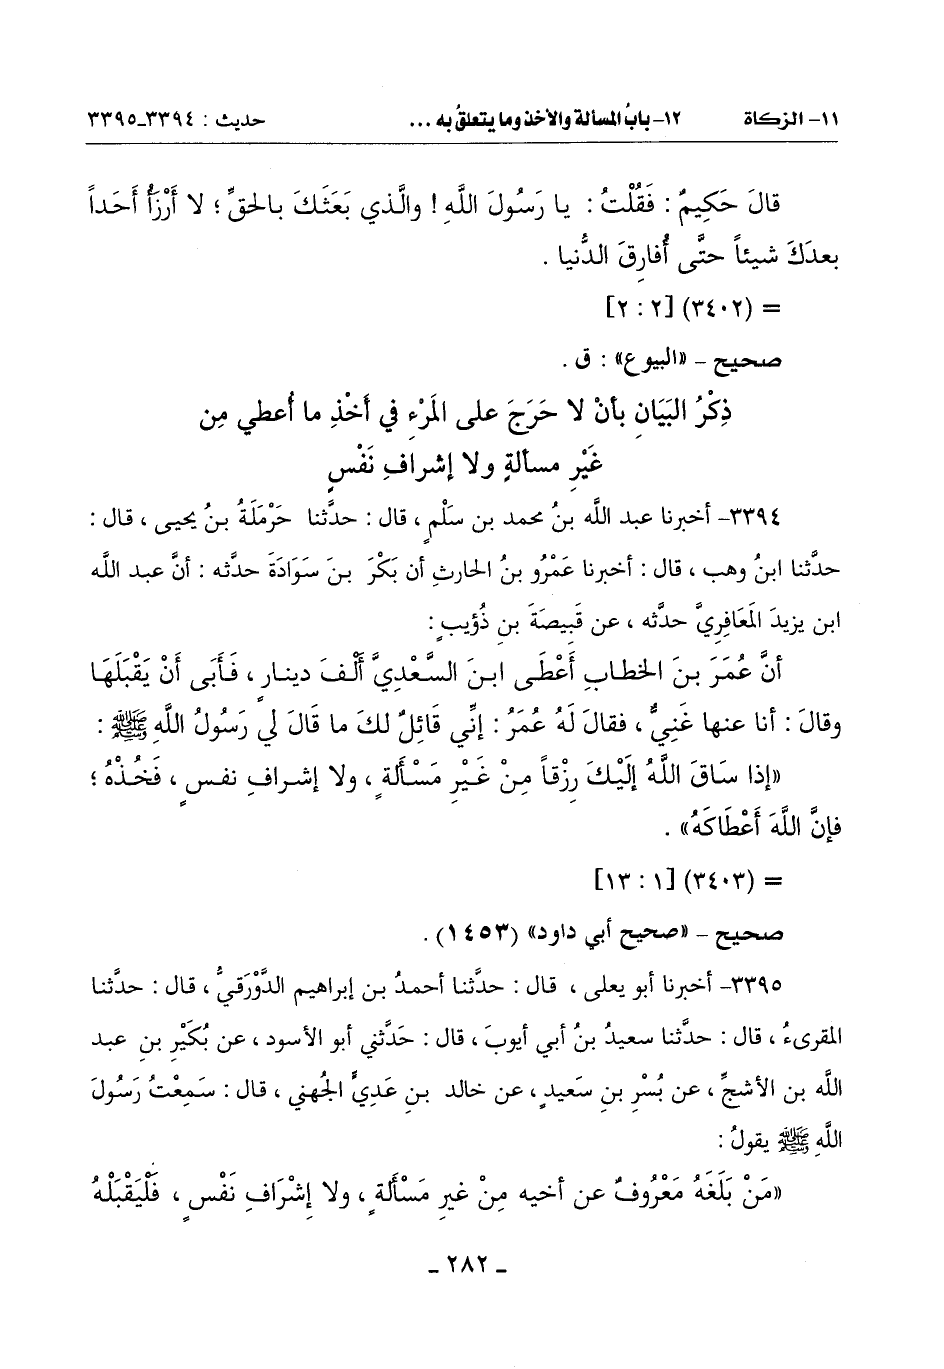 ١١- الزكاة ١٢- بابُ المسألة والأخذ وما يتعلقُ به ... حديث : ٣٣٩٤-٣٣٩٥
قالَ حَكِيمٌ : فَقُلْتُ : يا رَسُولَ اللَّهِ ! والَّذي بَعَثَكَ بالحَقِّ ؛ لا أَرْزَأُ أَحَداً
بعدَكَ شيئاً حتَّى أُفارِقَ الدُّنيا .
= (٣٤٠٢) [٢ : ٢]
صحيح - «البيوع» : ق .
ذِكْرُ البَيَانِ بأنْ لا حَرَجَ على المَرْءِ في أَخْذِ ما أُعطي مِن
غَيْرِ مسألةٍ ولا إشرافِ نَفْسٍ
٣٣٩٤- أخبرنا عبد اللَّه بنُ محمد بن سَلْمٍ ، قال : حدَّثنا حَرْمَلَةُ بنُ يحيى ، قال :
حدَّثنا ابنُ وهب ، قال : أخبرنا عَمْرُو بنُ الحارثِ أن بَكْرَ بنَ سَوَادَةَ حدثه : أنَّ عبد اللَّه
ابن يزيدَ المَعَافِرِيَّ حدَّثه ، عن قَبِيصَةَ بنِ ذُؤيبٍ :
أنَّ عُمَرَ بنَ الخطابِ أَعْطَى ابنَ السَّعْدِيِّ أَلْفَ دينارٍ ، فَأَبَى أَنْ يَقْبَلَهَا
وقالَ : أنا عنها غَنِيٌّ ، فقالَ لَهُ عُمَرُ : إنِّي قَائِلٌ لكَ ما قَالَ لي رَسُولُ اللَّهِ ﷺ :
«إذا سَاقَ اللَّهُ إلَيْكَ رِزْقاً مِنْ غَيْرِ مَسْأَلَةٍ ، ولا إشرافِ نفسٍ ، فَخُذْهُ ؛
فإنَّ اللَّهَ أَعْطَاكَهُ» .
= (٣٤٠٣) [١ : ١٣]
صحيح - «صحيح أبي داود» (١٤٥٣) .
٣٣٩٥- أخبرنا أبو يعلى ، قال : حدَّثنا أحمدُ بن إبراهيم الدَّوْرَقيُّ ، قال : حدَّثنا
المقرىءُ ، قال : حدَّثنا سعيدُ بنُ أبي أيوبَ ، قال : حَدَّثني أبو الأسود ، عن بُكَيْرِ بنِ عبد
اللَّه بن الأشجِّ ، عن بُسْرِ بنِ سَعيدٍ ، عن خالد بنِ عَدِيٍّ الجُهني ، قال : سَمِعْتُ رَسُولَ
اللَّهِ ﷺ يقولُ :
«مَنْ بَلَغَهُ مَعْرُوفٌ عن أخيه مِنْ غيرِ مَسْأَلَةٍ ، ولا إشْرَافِ نَفْسٍ ، فَلْيَقْبَلْهُ
- ٢٨٢ -